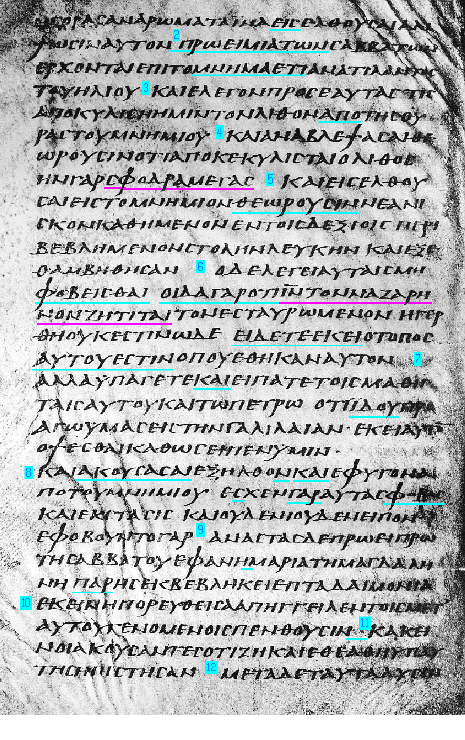 ΓΟΡΑϹΑΝΑΡΩΜΑΤΑΙΝΑΕΙϹΕΛΘΟΥϹΑΙΑΛΙ
ΨΩϹΙΝΑΥΤΟΝ 2 ΠΡΩΕΙΜΙΑΤΩΝϹΑΒΒΑΤΩΝ
ΕΡΧΟΝΤΑΙΕΠΙΤΟΜΝΗΜΑΕΤΙΑΝΑΤΙΛΑΝΤΟϹ
ΤΟΥΗΛΙΟΥ 3 ΚΑΙΕΛΕΓΟΝΠΡΟϹΕΑΥΤΑϹΤΙϹ
ΑΠΟΚΥΛΙϹΗΗΜΙΝΤΟΝΛΙΘΟΝΑΠΟΤΗϹΘΥ
ΡΑϹΤΟΥΜΝΗΜΙΟΥ· 4 ΚΑΙΑΝΑΒΛΕΨΑϹΑΙΘΕ
ΩΡΟΥϹΙΝΟΤΙΑΠΟΚΕΚΥΛΙϹΤΑΙΟΛΙΘΟϹ
ΗΝΓΑΡϹΦΟΔΡΑΜΕΓΑϹ 5 ΚΑΙΕΙϹΕΛΘΟΥ
ϹΑΙΕΙϹΤΟΜΝΗΜΙΟΝΘΕΩΡΟΥϹΙΝΝΕΑΝΙ
ϹΚΟΝΚΑΘΗΜΕΝΟΝΕΝΤΟΙϹΔΕΞΙΟΙϹΠΕΡΙ
ΒΕΒΛΗΜΕΝΟΝϹΤΟΛΗΝΛΕΥΚΗΝ ΚΑΙΕΞΕ
ΘΑΜΒΗΘΗϹΑΝ 6 ΟΔΕΛΕΓΕΙΑΥΤΑΙϹΜΗ
ΦΟΒΕΙϹΘΑΙ ΟΙΔΑΓΑΡΟΤΙΙΝΤΟΝΝΑΖΑΡΗ
ΝΟΝΖΗΤΙΤΑΙΤΟΝΕϹΤΑΥΡΩΜΕΝΟΝ ΗΓΕΡ
ΘΗΟΥΚΕϹΤΙΝΩΔΕ ΕΙΔΕΤΕΕΚΕΙΟΤΟΠΟϹ
ΑΥΤΟΥΕϹΤΙΝΟΠΟΥΕΘΗΚΑΝΑΥΤΟΝ 7
ΑΛΛΑΥΠΑΓΕΤΕΚΑΙΕΙΠΑΤΕΤΟΙϹΜΑΘΗ
ΤΑΙϹΑΥΤΟΥΚΑΙΤΩΠΕΤΡΩ ΟΤΙΙΔΟΥΠΡΟ
ΑΓΩΥΜΑϹΕΙϹΤΗΝΓΑΛΙΛΑΙΑΝ· ΕΚΕΙΑΥΤΟ
ΟΨΕϹΘΑΙΚΑΘΩϹΕΙΠΕΝΥΜΙΝ·
8 ΚΑΙΑΚΟΥϹΑϹΑΙΕΞΗΛΘΟΝΚΑΙΕΦΥΓΟΝΑ
ΠΟΤΟΥΜΝΗΜΙΟΥ· ΕϹΧΕΝΓΑΡΑΥΤΑϹΦΟΒΟϹ
ΚΑΙΕΚϹΤΑϹΙϹ ΚΑΙΟΥΔΕΝΙΟΥΔΕΝΕΙΠΟΝ
ΕΦΟΒΟΥΝΤΟΓΑΡ 9 ΑΝΑϹΤΑϹΔΕΠΡΩΕΙΠΡΩ
ΤΗϹΑΒΒΑΤΟΥΕΦΑΝΗΜΑΡΙΑΤΗΜΑΓΔΑΛΗ
ΝΗ ΠΑΡΗϹΕΚΒΕΒΛΗΚΕΙΕΠΤΑΔΑΙΜΟΝΙΑ
10 ΕΚΕΙΝΗΠΟΡΕΥΘΕΙϹΑΑΠΗΓΓΕΙΛΕΝΤΟΙϹΜΕΤ
ΑΥΤΟΥΓΕΝΟΜΕΝΟΙϹΠΕΝΘΟΥϹΙΝ 11 ΚΑΚΕΙ
ΝΟΙΑΚΟΥϹΑΝΤΕϹΟΤΙΖΗΚΑΙΕΘΕΑΘΗΥΠΑΥ
ΤΗϹΗΠΙϹΤΗϹΑΝ 12 ΜΕΤΑΔΕΤΑΥΤΑΔΥϹΙΝ